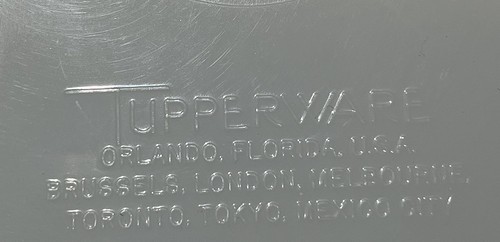 TUPPERWARE
ORLANDO, FLORIDA, U.S.A.
BRUSSELS, LONDON, MELBOURNE,
TORONTO, TOKYO, MEXICO CITY